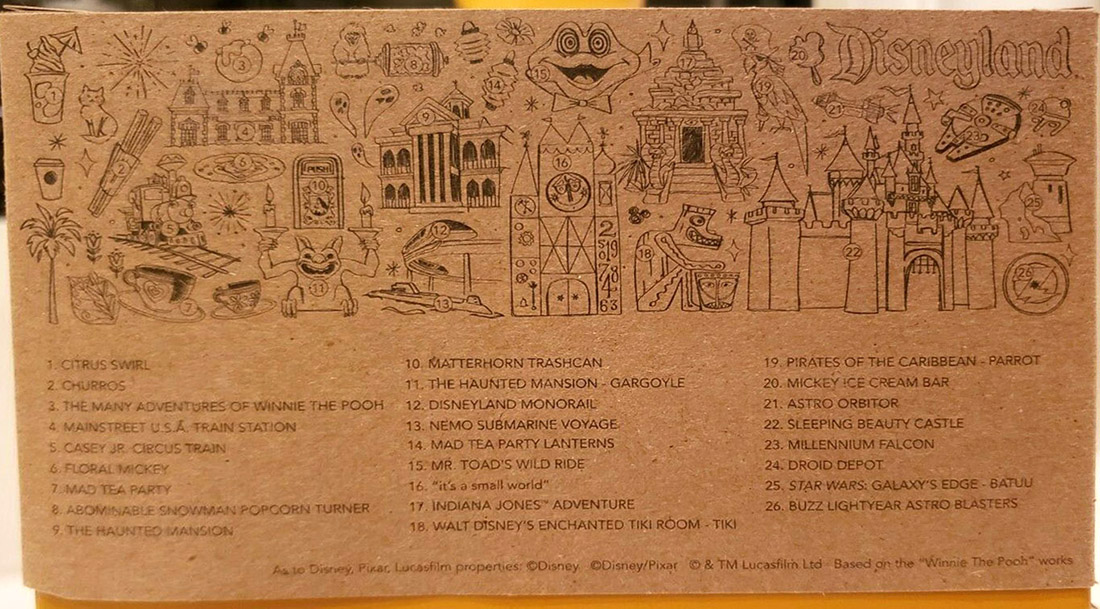 Disneyland
PUSH
1. CITRUS SWIRL
2. CHURROS
3. THE MANY ADVENTURES OF WINNIE THE POOH
4. MAINSTREET U.S.A. TRAIN STATION
5. CASEY JR. CIRCUS TRAIN
6. FLORAL MICKEY
7. MAD TEA PARTY
8. ABOMINABLE SNOWMAN POPCORN TURNER
9. THE HAUNTED MANSION
10. MATTERHORN TRASHCAN
11. THE HAUNTED MANSION - GARGOYLE
12. DISNEYLAND MONORAIL
13. NEMO SUBMARINE VOYAGE
14. MAD TEA PARTY LANTERNS
15. MR. TOAD'S WILD RIDE
16. "it's a small world"
17. INDIANA JONES™ ADVENTURE
18. WALT DISNEY'S ENCHANTED TIKI ROOM - TIKI
19. PIRATES OF THE CARIBBEAN - PARROT
20. MICKEY ICE CREAM BAR
21. ASTRO ORBITOR
22. SLEEPING BEAUTY CASTLE
23. MILLENNIUM FALCON
24. DROID DEPOT
25. STAR WARS: GALAXY'S EDGE - BATUU
26. BUZZ LIGHTYEAR ASTRO BLASTERS
As to Disney, Pixar, Lucasfilm properties: ©Disney ©Disney/Pixar © & TM Lucasfilm Ltd · Based on the "Winnie The Pooh" works